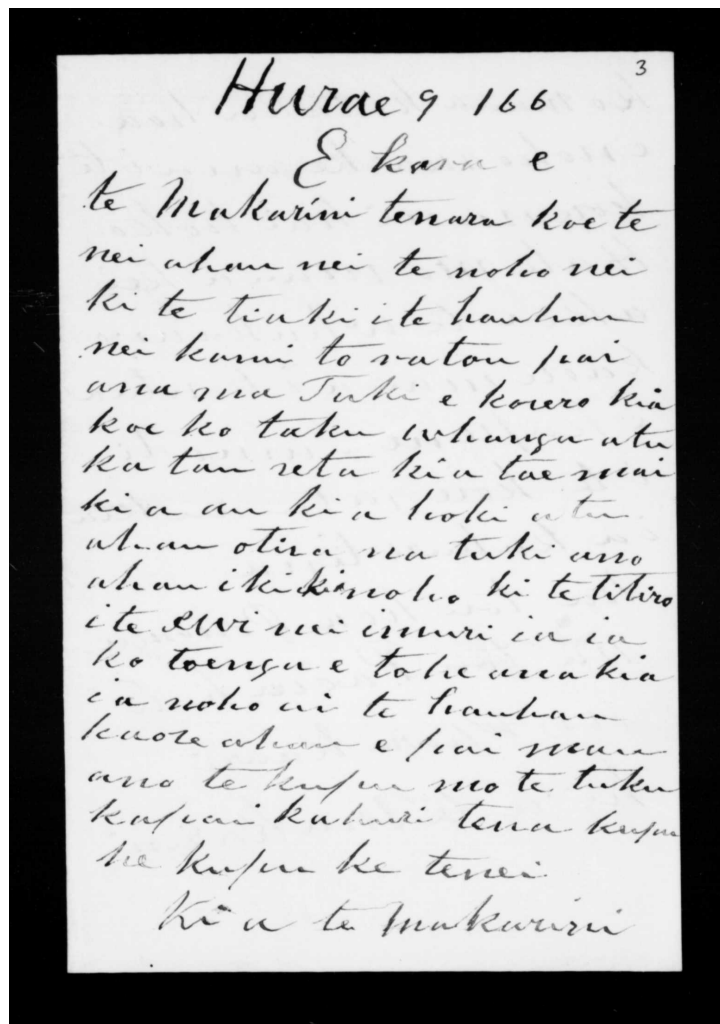 3
Hurae 9 166
E kara e
te Makarini tenara koe te
nei ahau nei te noho nei
ki te tiaki i te hauhau
nei kami to ratou pai
ana ma Tuki e korero kia
koe ko taku whanga atu
ka tau reta kia tae mai
ki a au kia hoki atu
ahau otira na tuki ano
ahau i ki noho ki te titiro
i te iwi nei imuri ia ia
ko toenga e tohe ana kia
ia noho ai te hauhau
kaore ahau e pai mau
ano te kupu mo te tuku
ka pai kahuri tena kupu
he kupu ke tenei
Ki a te Makarini